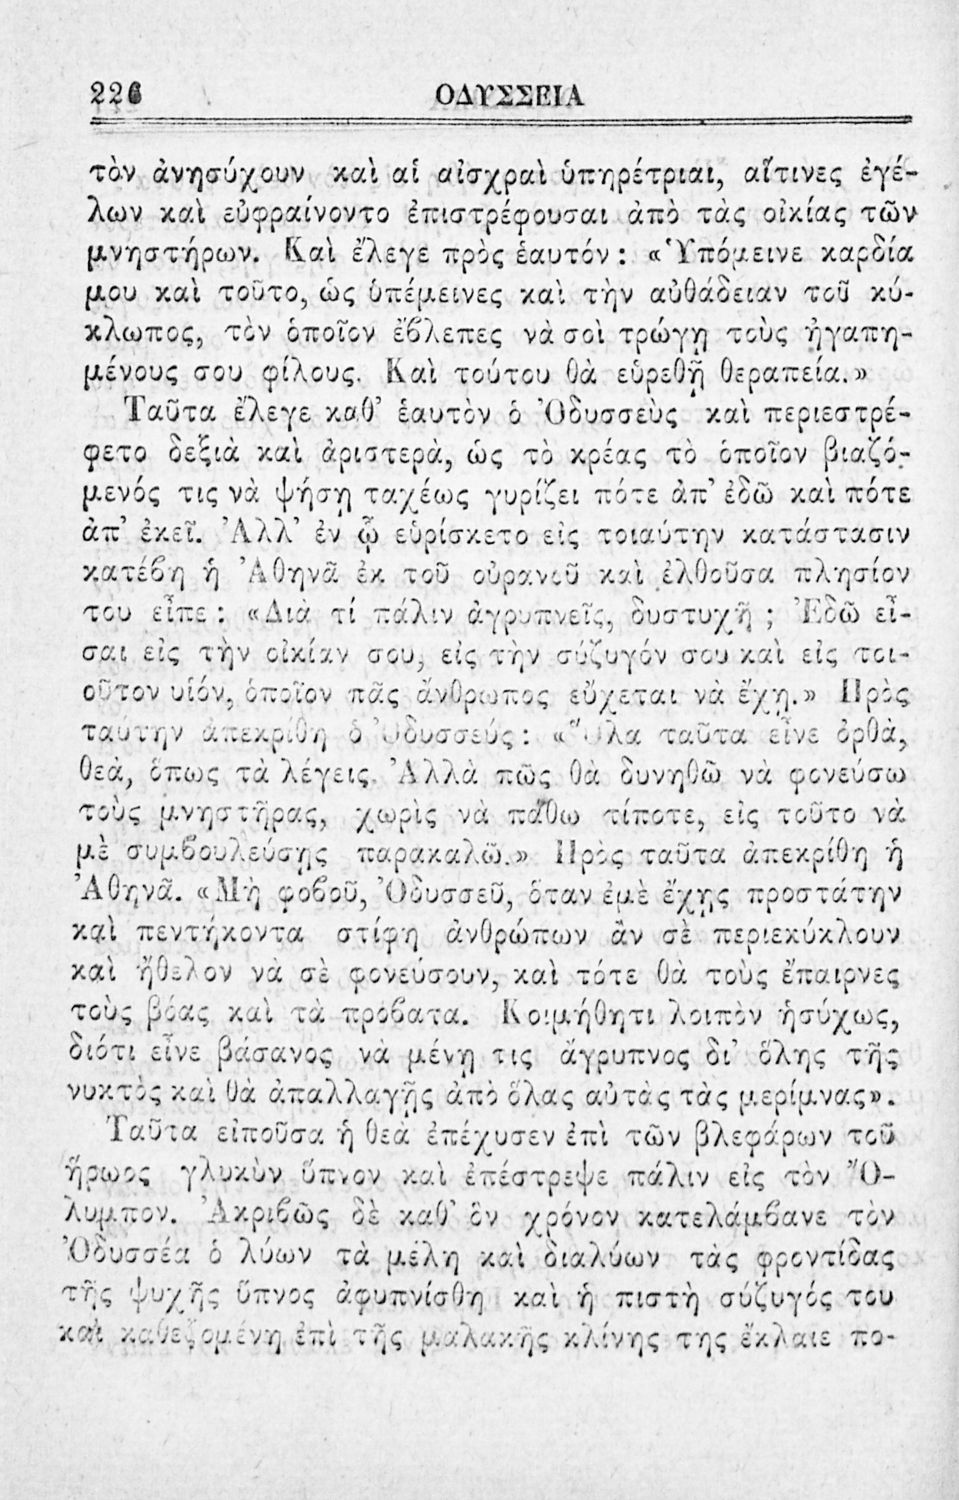 226 ΟΔΥΣΣΕΙΑ
τὸν ἀνησύχουν καὶ αἱ αἰσχραὶ ὑπηρέτριαι, αἵτινες ἐγέ-
λων καὶ εὐφραίνοντο ἐπιστρέφουσαι ἀπὸ τὰς οἰκίας τῶν
μνηστήρων. Καὶ ἔλεγε πρὸς ἑαυτόν : « Ὑπόμεινε καρδία
μου καὶ τοῦτο, ὡς ὑπέμεινες καὶ τὴν αὐθάδειαν τοῦ κύ-
κλωπος, τὸν ὁποῖον ἔβλεπες νὰ σοὶ τρώγῃ τοὺς ἠγαπη-
μένους σου φίλους. Καὶ τούτου θὰ εὑρεθῇ θεραπεία.»
Ταῦτα ἔλεγε καθ’ ἑαυτὸν ὁ Ὀδυσσεὺς καὶ περιεστρέ-
φετο δεξιὰ καὶ ἀριστερὰ, ὡς τὸ κρέας τὸ ὁποῖον βιαζό-
μενός τις νὰ ψήσῃ ταχέως γυρίζει πότε ἀπ’ ἐδῶ καὶ πότε
ἀπ’ ἐκεῖ. Ἀλλ’ ἐν ᾧ εὑρίσκετο εἰς τοιαύτην κατάστασιν
κατέβη ἡ Ἀθηνᾶ ἐκ τοῦ οὐρανοῦ καὶ ἐλθοῦσα πλησίον
του εἶπε : «Διὰ τί πάλιν ἀγρυπνεῖς, δυστυχῆ ; Ἐδῶ εἶ-
σαι εἰς τὴν οἰκίαν σου, εἰς τὴν σύζυγόν σου καὶ εἰς τοι-
οῦτον υἱόν, ὁποῖον πᾶς ἄνθρωπος εὔχεται νὰ ἔχῃ.» Πρὸς
ταύτην ἀπεκρίθη ὁ Ὀδυσσεύς : « Ὅλα ταῦτα εἶνε ὀρθὰ,
θεὰ, ὅπως τὰ λέγεις. Ἀλλὰ πῶς θὰ δυνηθῶ νὰ φονεύσω
τοὺς μνηστῆρας, χωρὶς νὰ πάθω τίποτε, εἰς τοῦτο νὰ
μὲ συμβουλεύσῃς παρακαλῶ.» Πρὸς ταῦτα ἀπεκρίθη ἡ
Ἀθηνᾶ. «Μὴ φοβοῦ, Ὀδυσσεῦ, ὅταν ἐμὲ ἔχῃς προστάτην
καὶ πεντήκοντα στίφη ἀνθρώπων ἂν σὲ περιεκύκλουν
καὶ ἤθελον νὰ σὲ φονεύσουν, καὶ τότε θὰ τοὺς ἔπαιρνες
τοὺς βόας καὶ τὰ πρόβατα. Κοιμήθητι λοιπὸν ἡσύχως,
διότι εἶνε βάσανος νὰ μένῃ τις ἄγρυπνος δι’ ὅλης τῆς
νυκτὸς καὶ θὰ ἀπαλλαγῇς ἀπὸ ὅλας αὐτὰς τὰς μερίμνας».
Ταῦτα εἰποῦσα ἡ θεὰ ἐπέχυσεν ἐπὶ τῶν βλεφάρων τοῦ
ἥρωος γλυκὺν ὕπνον καὶ ἐπέστρεψε πάλιν εἰς τὸν Ὄ-
λυμπον. Ἀκριβῶς δὲ καθ’ ὃν χρόνον κατελάμβανε τὸν
Ὀδυσσέα ὁ λύων τὰ μέλη καὶ διαλύων τὰς φροντίδας
τῆς ψυχῆς ὕπνος ἀφυπνίσθη καὶ ἡ πιστὴ σύζυγός του
καὶ καθεζομένη ἐπὶ τῆς μαλακῆς κλίνης της ἔκλαιε πο-